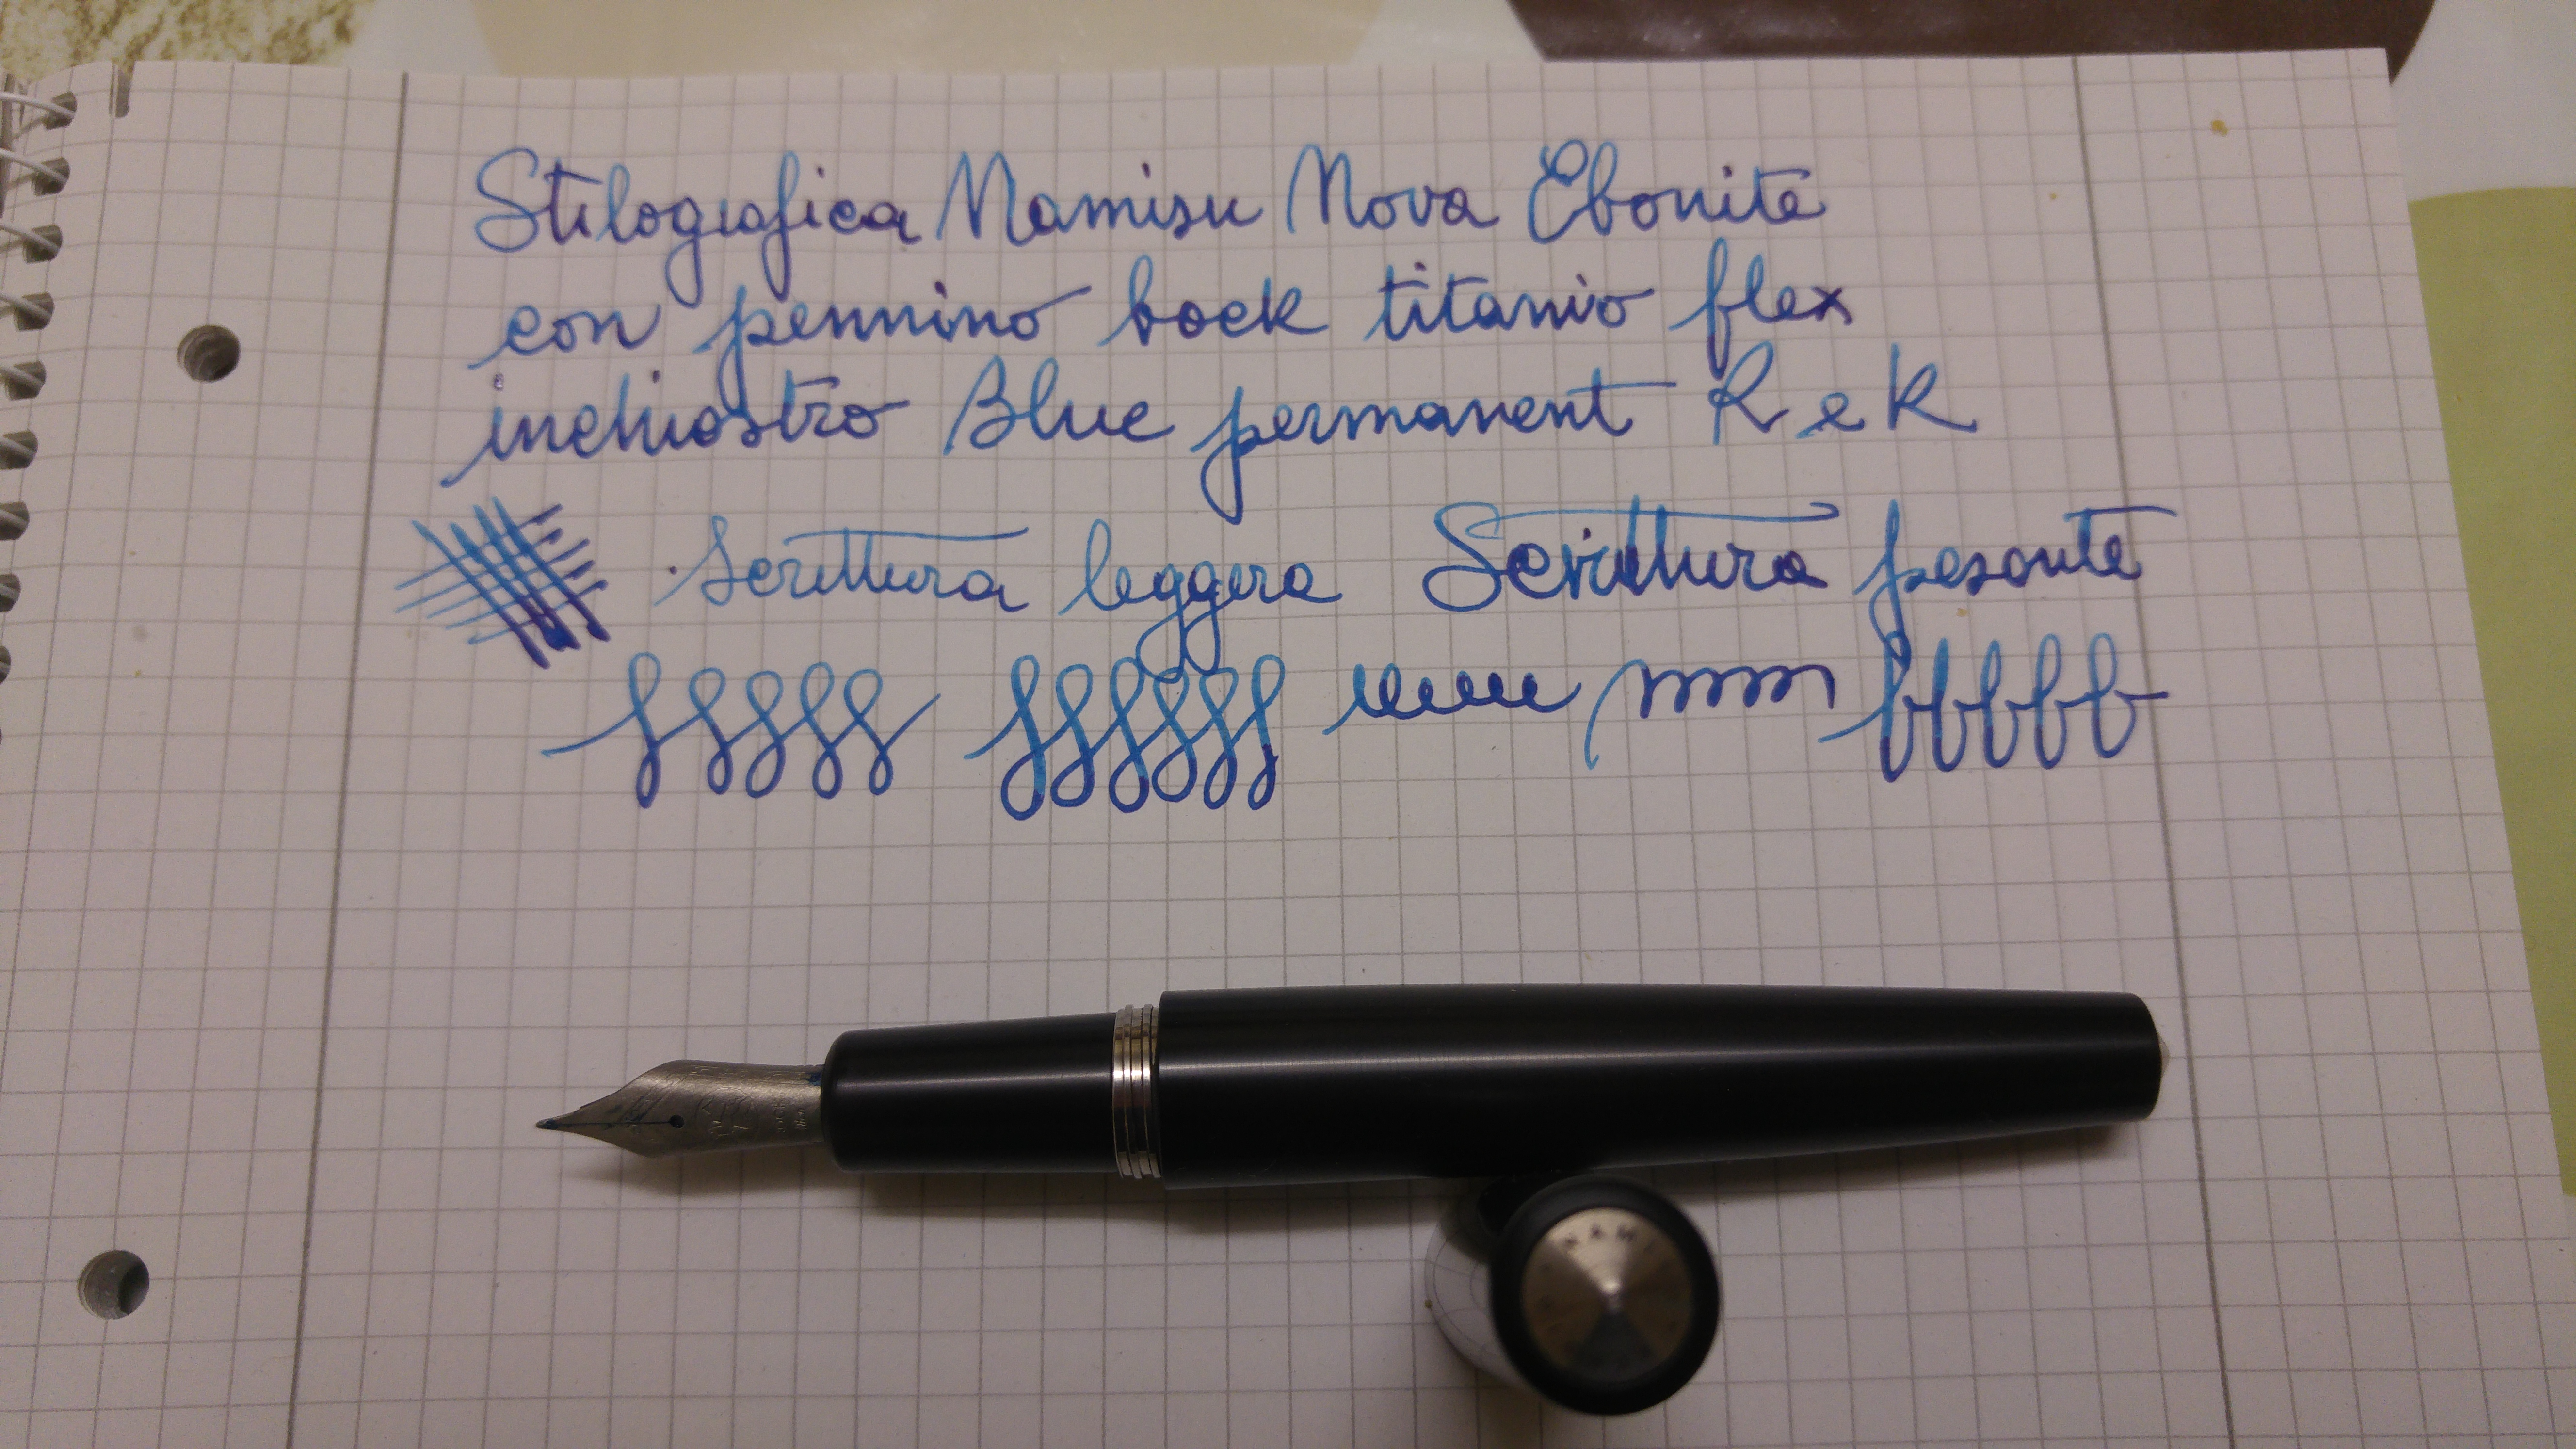 Stilografica Namisu Nova Ebonite
con pennino bock titanio flex
inchiostro Blue permanent R e K
Scrittura leggera Scrittura pesante
NAMI